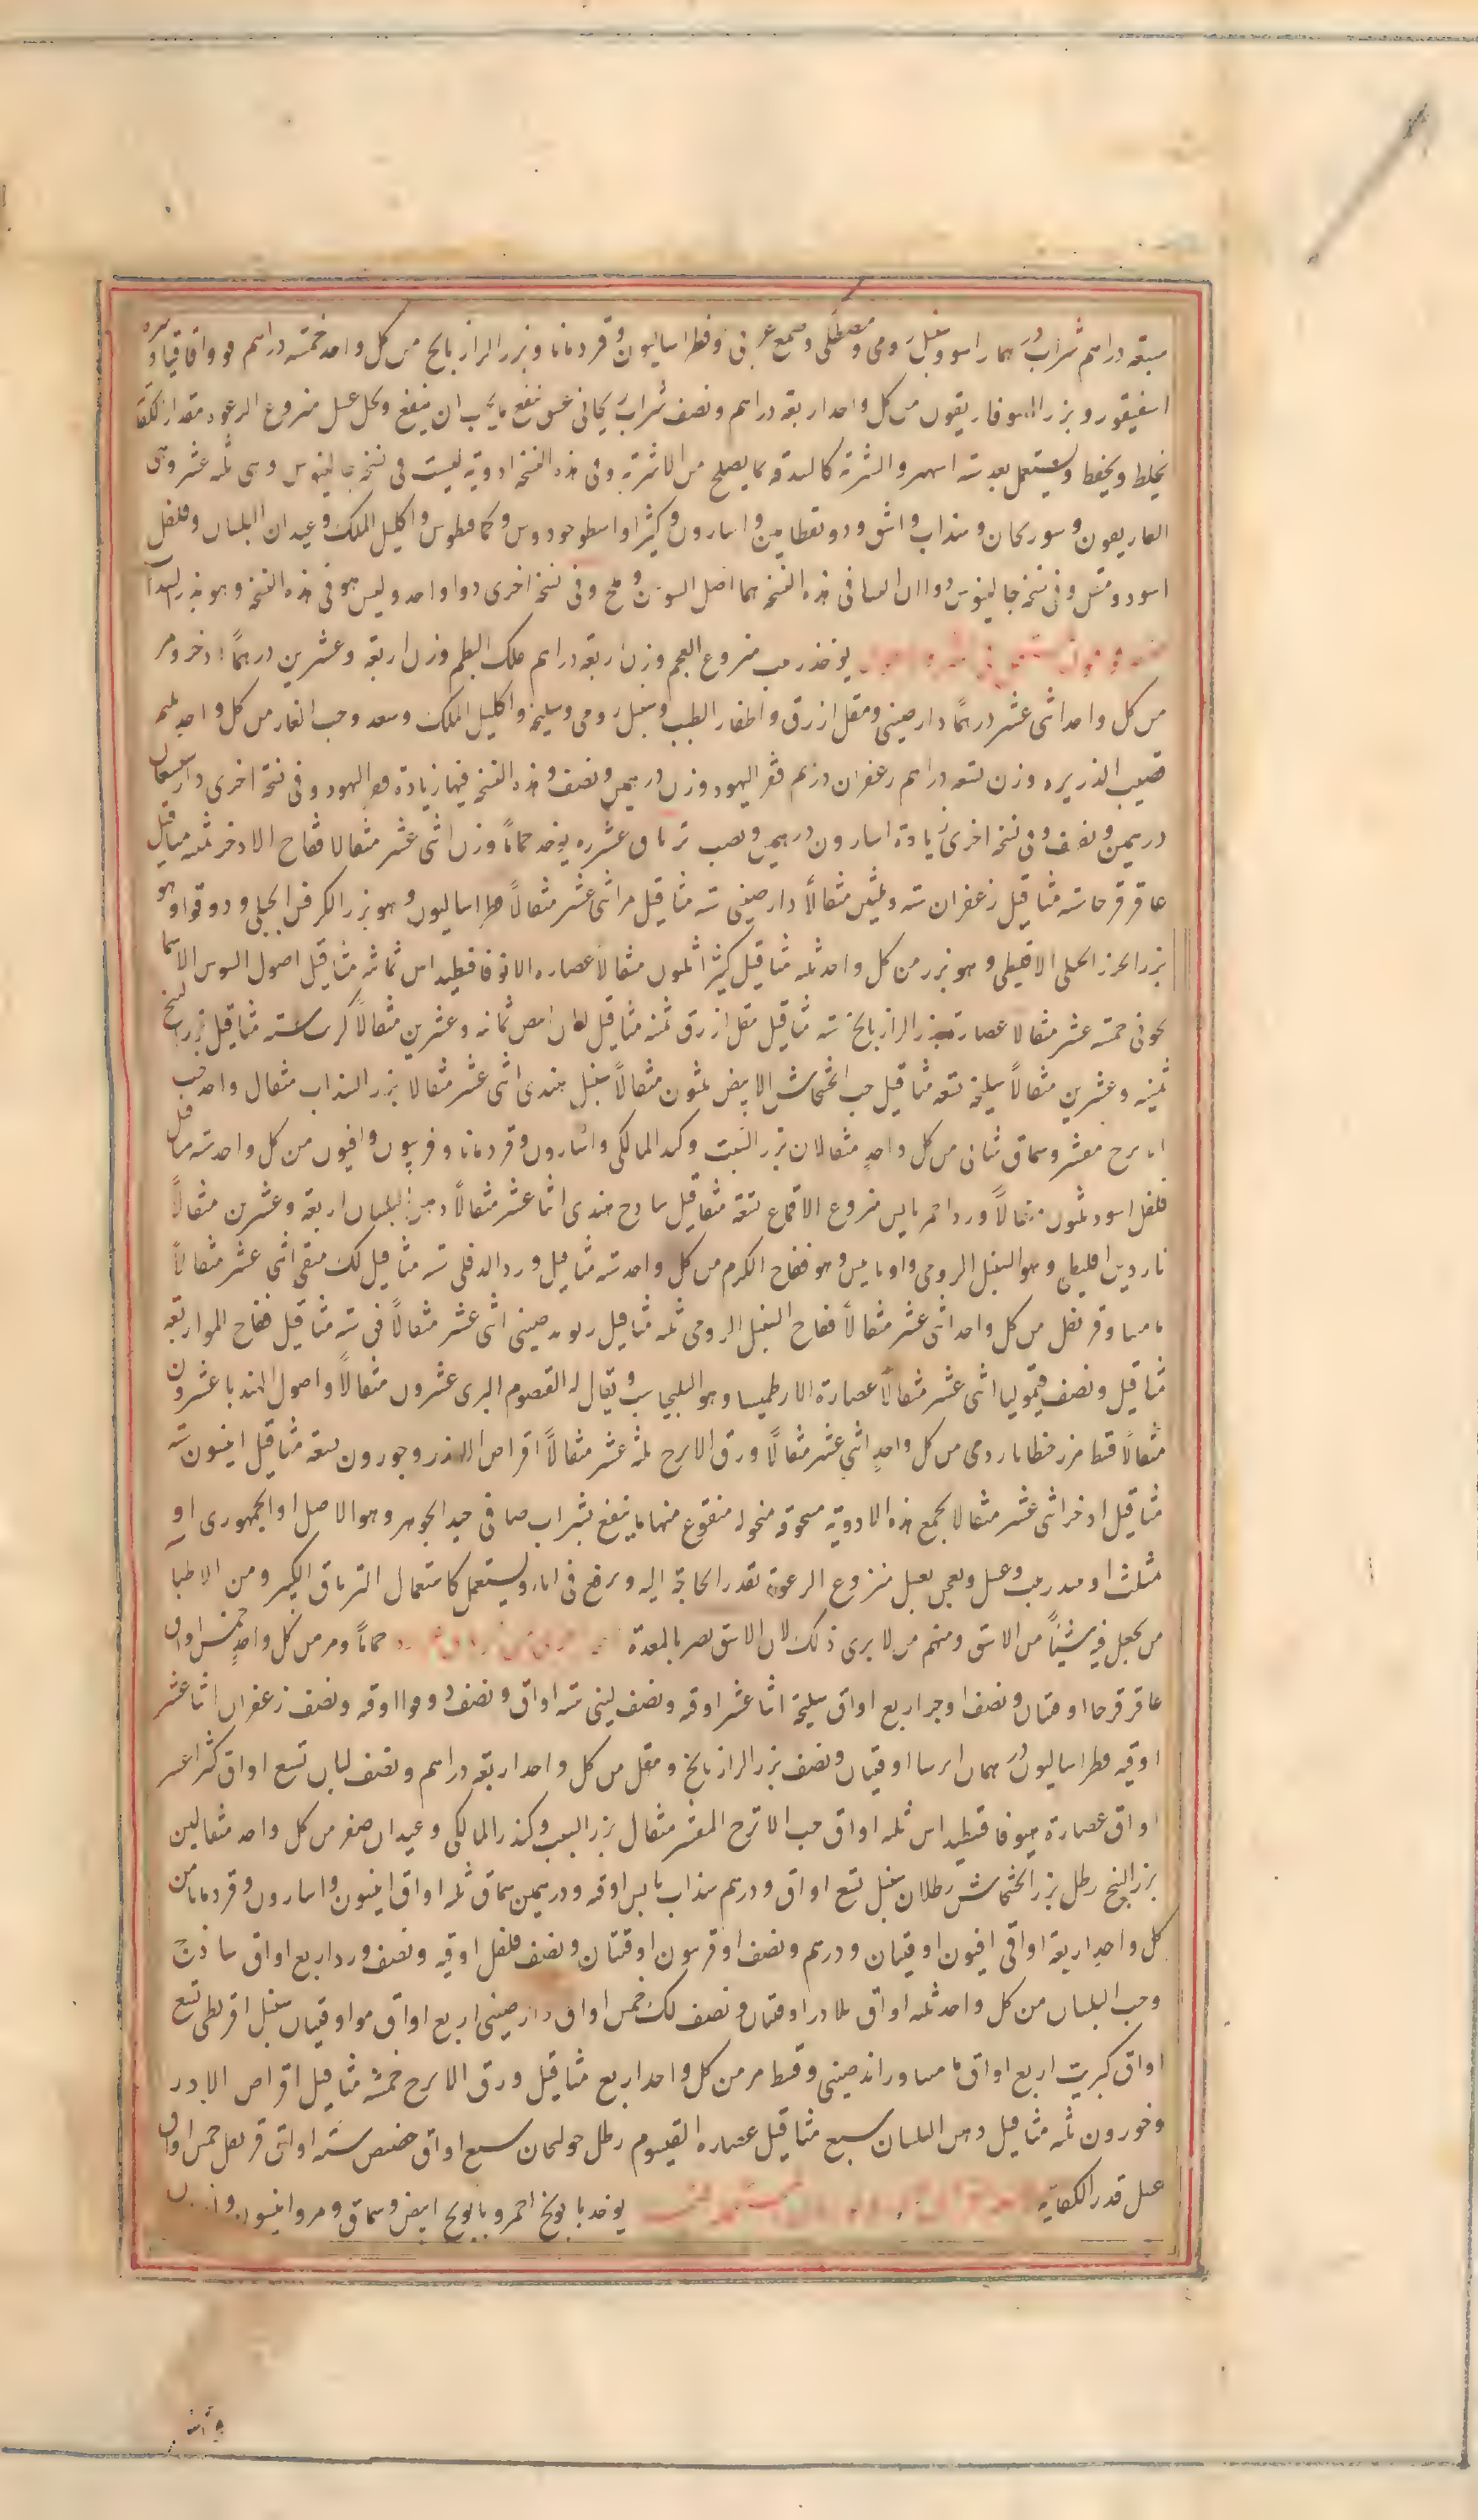 سبعة دراهم شراب درهما راسو وسنبل رومى ومصطكى وصمغ عربى وفطراساليون وقردمانا وبزر الرازيانج من كل واحد خمسة دراهم مو واقاقيا وسره
اسقيقور وبزر الهيوفاريقون من كل واحد اربعة دراهم ونصف شراب ريحانى عتيق ينقع ما يجب ان ينقع ويحل عسل منزوع الرغوة مقدار الكفاية
يخلط ويحفظ ويستعمل بعد ستة اشهر والشربة كالبندقة بما يصلح من الاشربة وفى هذه النسخة ادوية ليست فى نسخة جالينوس وهى ثلثة عشر وهى
الغاريقون وسورنجان وسذاب واشق ودوقطامين واسارون وكثيرا واسطوخودوس وكمافيطوس واكليل الملك وعيدان البلسان وفلفل
اسود ومقل وفى نسخة جالينوس دواان ليسا فى هذه النسخة هما اصل السوسن وملح وفى نسخة اخرى دوا واحد وليس هو فى هذه النسخة وهو بزر السذاب
يؤخذ زبيب منزوع العجم وزن اربعة دراهم علك البطم وزن اربعة وعشرين درهمًا اذخر ومر
من كل واحد اثنى عشر درهمًا دارصينى ومقل ازرق واظفار الطيب وسنبل رومى وسليخة واكليل الملك وسعد وحب الغار من كل واحد ثلثة
قصب الذريرة وزن تسعة دراهم زعفران درهم قفر اليهود وزن درهمين ونصف وهذه النسخة فيها زيادة قفر اليهود وفى نسخة اخرى دارشيشعان
درهمين ونصف وفى نسخة اخرى زيادة اسارون درهمين ونصف ترياق عشرة يؤخذ حماما وزن اثنى عشر مثقالا فقاح الاذخر ثلثة مثاقيل
عاقرقرحا ستة مثاقيل زعفران ستة وثلثين مثقالًا دارصينى ستة مثاقيل مر اثنى عشر مثقالًا فطراساليون وهو بزر الكرفس الجبلى ودوقوا وهو
بزر الجزر الجبلى الاقليطى وهو بزر من كل واحد ثلثة مثاقيل كثيرا ثلثون مثقالا عصارة الانوفاقسطيداس ثمانية مثاقيل اصول السوس الاسما
نجونى خمسة عشر مثقالا عصارة بزر الرازيانج ستة مثاقيل مقل ازرق ثمنية مثاقيل لبان ابيض ثمانية وعشرين مثقالًا كرسنة ستة مثاقيل بزر البنج
ثمنية وعشرين مثقالًا سليخة تسعة مثاقيل حب الخشخاش الابيض ثلثون مثقالًا سنبل هندى اثنى عشر مثقالا بزر السذاب مثقال واحد حب
اترج مقشر وسماق شامى من كل واحدٍ مثقالان بزر الشبت وكندر المالكى واسارون وقردمانا وفربيون وافيون من كل واحد ستة مثاقيل
فلفل اسود ثلثون مثقالًا ورد احمر يابس منزوع الاقماع تسعة مثاقيل ساذج هندى اثنا عشر مثقالًا دهن البلسان اربعة وعشرين مثقالًا
ناردين اقليطى وهو السنبل الرومى واونامين وهو فقاح الكرم من كل واحد ستة مثاقيل ورد الدفلى ستة مثاقيل لك منقى اثنى عشر مثقالًا
ماميثا وقرنفل من كل واحد اثنى عشر مثقالًا فقاح السنبل الرومى ثلثة مثاقيل ريوند صينى اثنى عشر مثقالًا فى ستة مثاقيل فقاح المو اربعة
مثاقيل ونصف قيموليا اثنى عشر مثقالًا عصارة الارطميسا وهو البلنجاسب ويقال له القيصوم البرى عشرون مثقالًا واصول الهندبا عشرون
مثقالًا قسط مر زنظايا رومى من كل واحدٍ اثنى عشر مثقالًا ورق الاترج ثلثة عشر مثقالًا اقراص الاندروخورون تسعة مثاقيل انيسون ستة
مثاقيل اذخر اثنى عشر مثقالا يجمع هذه الادوية مسحوقة منخولة منقوع منها ما ينقع بشراب صافى جيد الجوهر وهو الاصل او الجمهورى او
مثلث او نبيذ زبيب وعسل ويعجن بعسل منزوع الرغوة بقدر الحاجة اليه ويرفع فى اناء ويستعمل كاستعمال الترياق الكبير ومن الاطبا
من يجعل فيه شيئًا من الاشق ومنهم من لا يرى ذلك لان الاشق يضر بالمعدة حماما ومر من كل واحدٍ خمس اواق
عاقرقرحا اوقيتان ونصف اوجرا ربع اواق سليخة اثنا عشر اوقية ونصف لبنى ستة اواق ونصف دوقوا اوقية ونصف زعفران اثنا عشر
اوقية فطراساليون درهمان ايرسا اوقيتان ونصف بزر الرازيانج ومقل من كل واحد اربعة دراهم ونصف لبان تسع اواق كثيرا عشر
اواق عصارة هيوفاقسطيداس ثلثة اواق حب الاترج المقشر مثقال بزر الشبت وكندر المالكى وعيدان صفر من كل واحد مثقالين
بزر البنج رطل بزر الخشخاش رطلان سنبل تسع اواق ودرهم سذاب يابس اوقية ودرهمين سماق ثلثة اواق انيسون واسارون وقردمانا من
كل واحد اربعة اواقى افيون اوقيتان ودرهم ونصف اوفربيون اوقيتان ونصف فلفل اوقية ونصف ورد اربع اواق ساذج
وحب البلسان من كل واحد ثلثة اواق بلادر اوقيتان ونصف لك خمس اواق دارصينى اربع اواق مو اوقيتان سنبل اقريطى تسع
اواق كبريت اربع اواق ماميثا وراوند صينى وقسط مر من كل واحد اربع مثاقيل ورق الاترج خمسة مثاقيل اقراص الاندر
وخورون ثلثة مثاقيل دهن البلسان سبع مثاقيل عصارة القيصوم رطل خولنجان سبع اواق حضض ستة اواق قرنفل خمس اواق
عسل قدر الكفاية يؤخذ بابونج احمر وبابونج ابيض وسماق ومر وانيسون